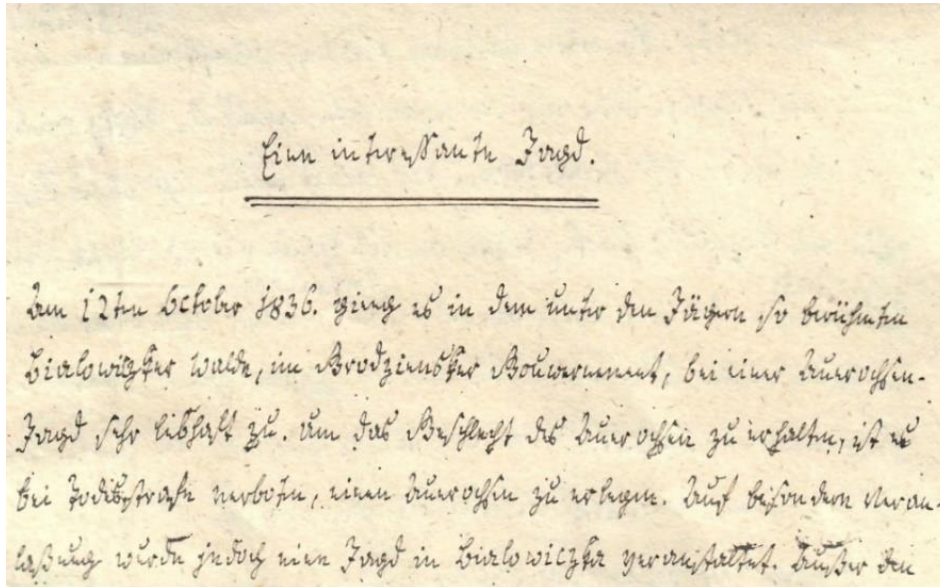 Eine interessante Jagd.
Am 12ten October 1836. gieng es in dem unter den Jägern so berühmten
Bialowiczker Walde, im Grodziensker Gouvernement, bei einer Auerochsen-
Jagd sehr lebhaft zu. Um das Geschlecht des Auerochsen zu erhalten, ist es
bei Todesstrafe verboten, einen Auerochsen zu erlegen. Auf besondere Veran-
laßung wurde jedoch eine Jagd in Bialowiczka veranstaltet. Außer den